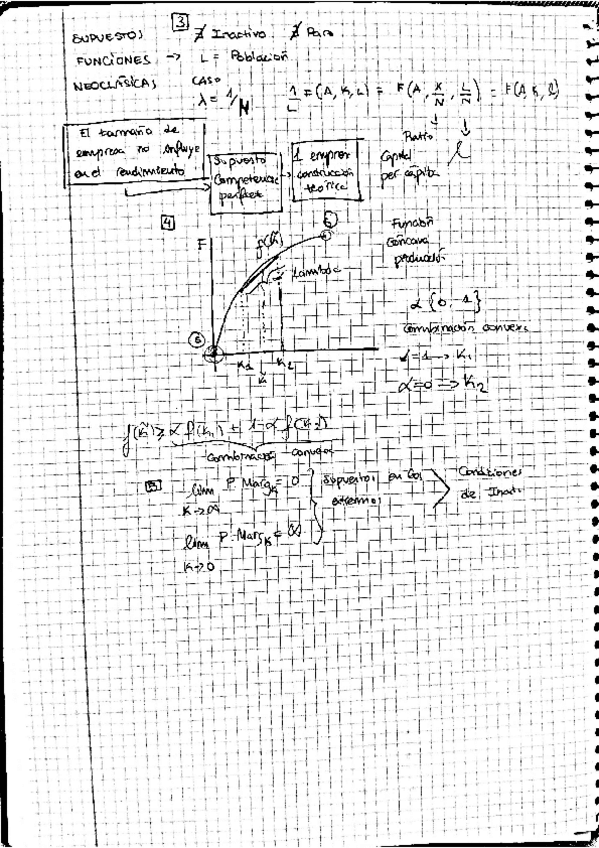 3
SUPUESTOS ∄ Inactivo ∄ Paro
FUNCIONES → L = Población
NEOCLÁSICAS CASO
λ = 1/N 1/L F(A, K, L) = F(A, K/N, L/N) = F(A, K, l)
El tamaño de
empresa no influye
en el rendimiento
Supuesto
Competencia
perfect
1 empresa
construcción
teórica
Ratio
Capital
per cápita
l
4
F
f(k̃)
6
6
K1 K̃ K2
Función
Cóncava
producción
α {0, 1}
Combinación convexa
α=1 → K1
α=0 ⇒ K2
f(k̃) ≥ α f(K1) + 1-α f(K2)
Combinación convexa
5
lim P. Marg K = 0
K→∞
lim P. Marg K = ∞
K→0
Supuestos en los
extremos
Condiciones
de Inada